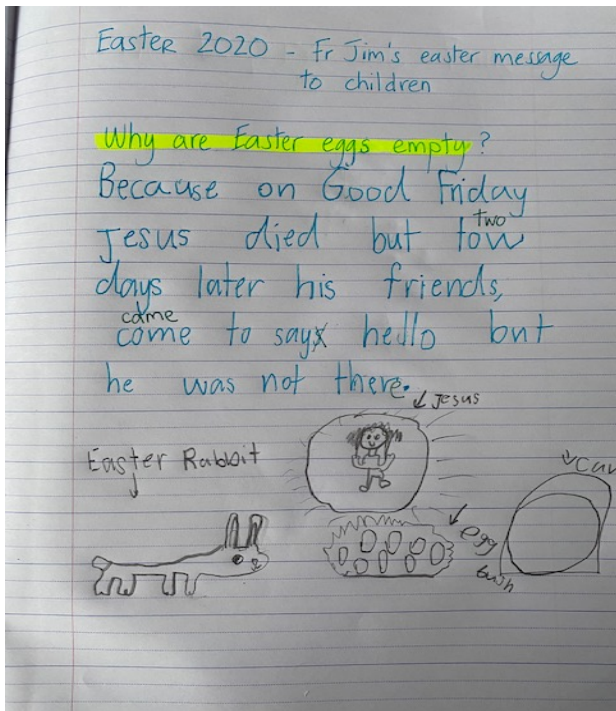 Easter 2020 - Fr Jim's easter message
to children
Why are Easter eggs empty?
Because on Good Friday
Jesus died but tow
two
days later his friends,
came
come to say hello but
he was not there.
Jesus
Easter Rabbit
egg
bush